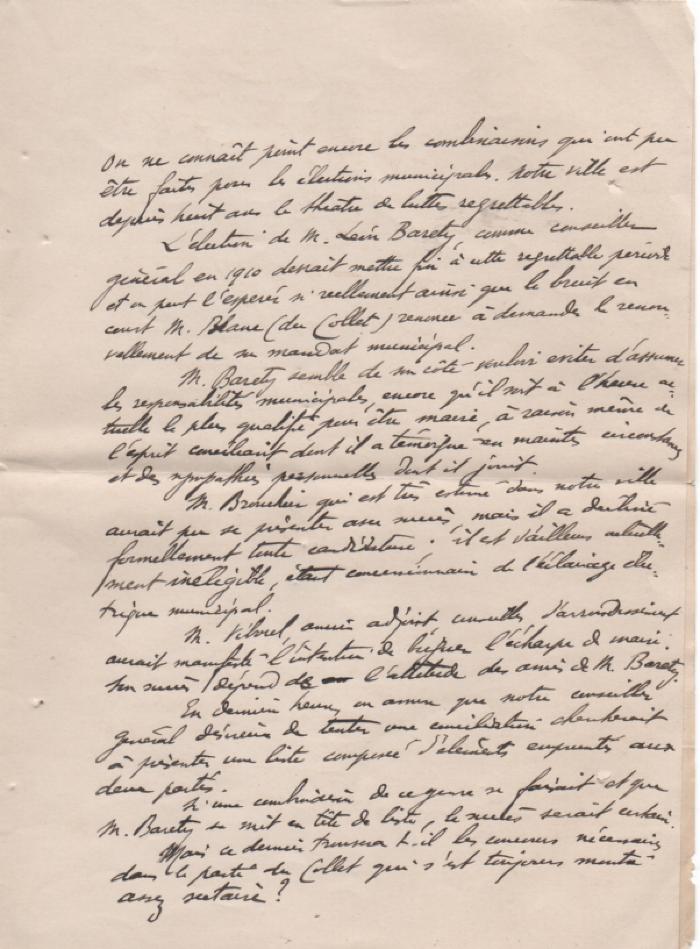 On ne connaît point encore les combinaisons qui ont pu
être faites pour les élections municipales. Notre ville est
depuis huit ans le théâtre de luttes regrettables.
L'élection de M. Léon Barety comme conseiller
général en 1910 devrait mettre fin à cette regrettable période
et on peut l'espérer si réellement ainsi que le bruit en
court M. Blanc (du Collet) renonce à demander le renou-
vellement de son mandat municipal.
M. Barety semble de son côté vouloir eviter d'assumer
les responsabilités municipales, encore qu'il soit à l'heure ac-
tuelle le plus qualifié pour être maire, à raison même de
l'esprit conciliant dont il a témoigné en maintes circonstances
et des sympathies personnelles dont il jouit.
M. qui est très estimé dans notre ville
aurait pu se présenter avec succès mais il a décliné
formellement toute candidature. il est d'ailleurs actuelle-
ment inéligible, étant concessionnaire de l'éclairage élec-
trique municipal.
M. ancien adjoint conseiller d'arrondissement
aurait manifesté l'intention de briguer l'écharpe de maire.
Son succès dépend de l'attitude des amis de M. Barety.
En dernière heure, on assure que notre conseiller
général désireux de tenter une conciliation chercherait
à présenter une liste composée d'éléments empruntés aux
deux partis.
Si une combinaison de ce genre se faisait et que
M. Barety se mit en tête de liste, le succès serait certain.
Mais ce dernier trouvera t-il les concours nécessaires
dans le parti du Collet qui s'est toujours montré
assez sectaire?